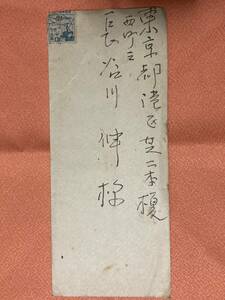 東京都港区芝二本榎
西町三
長谷川伸様